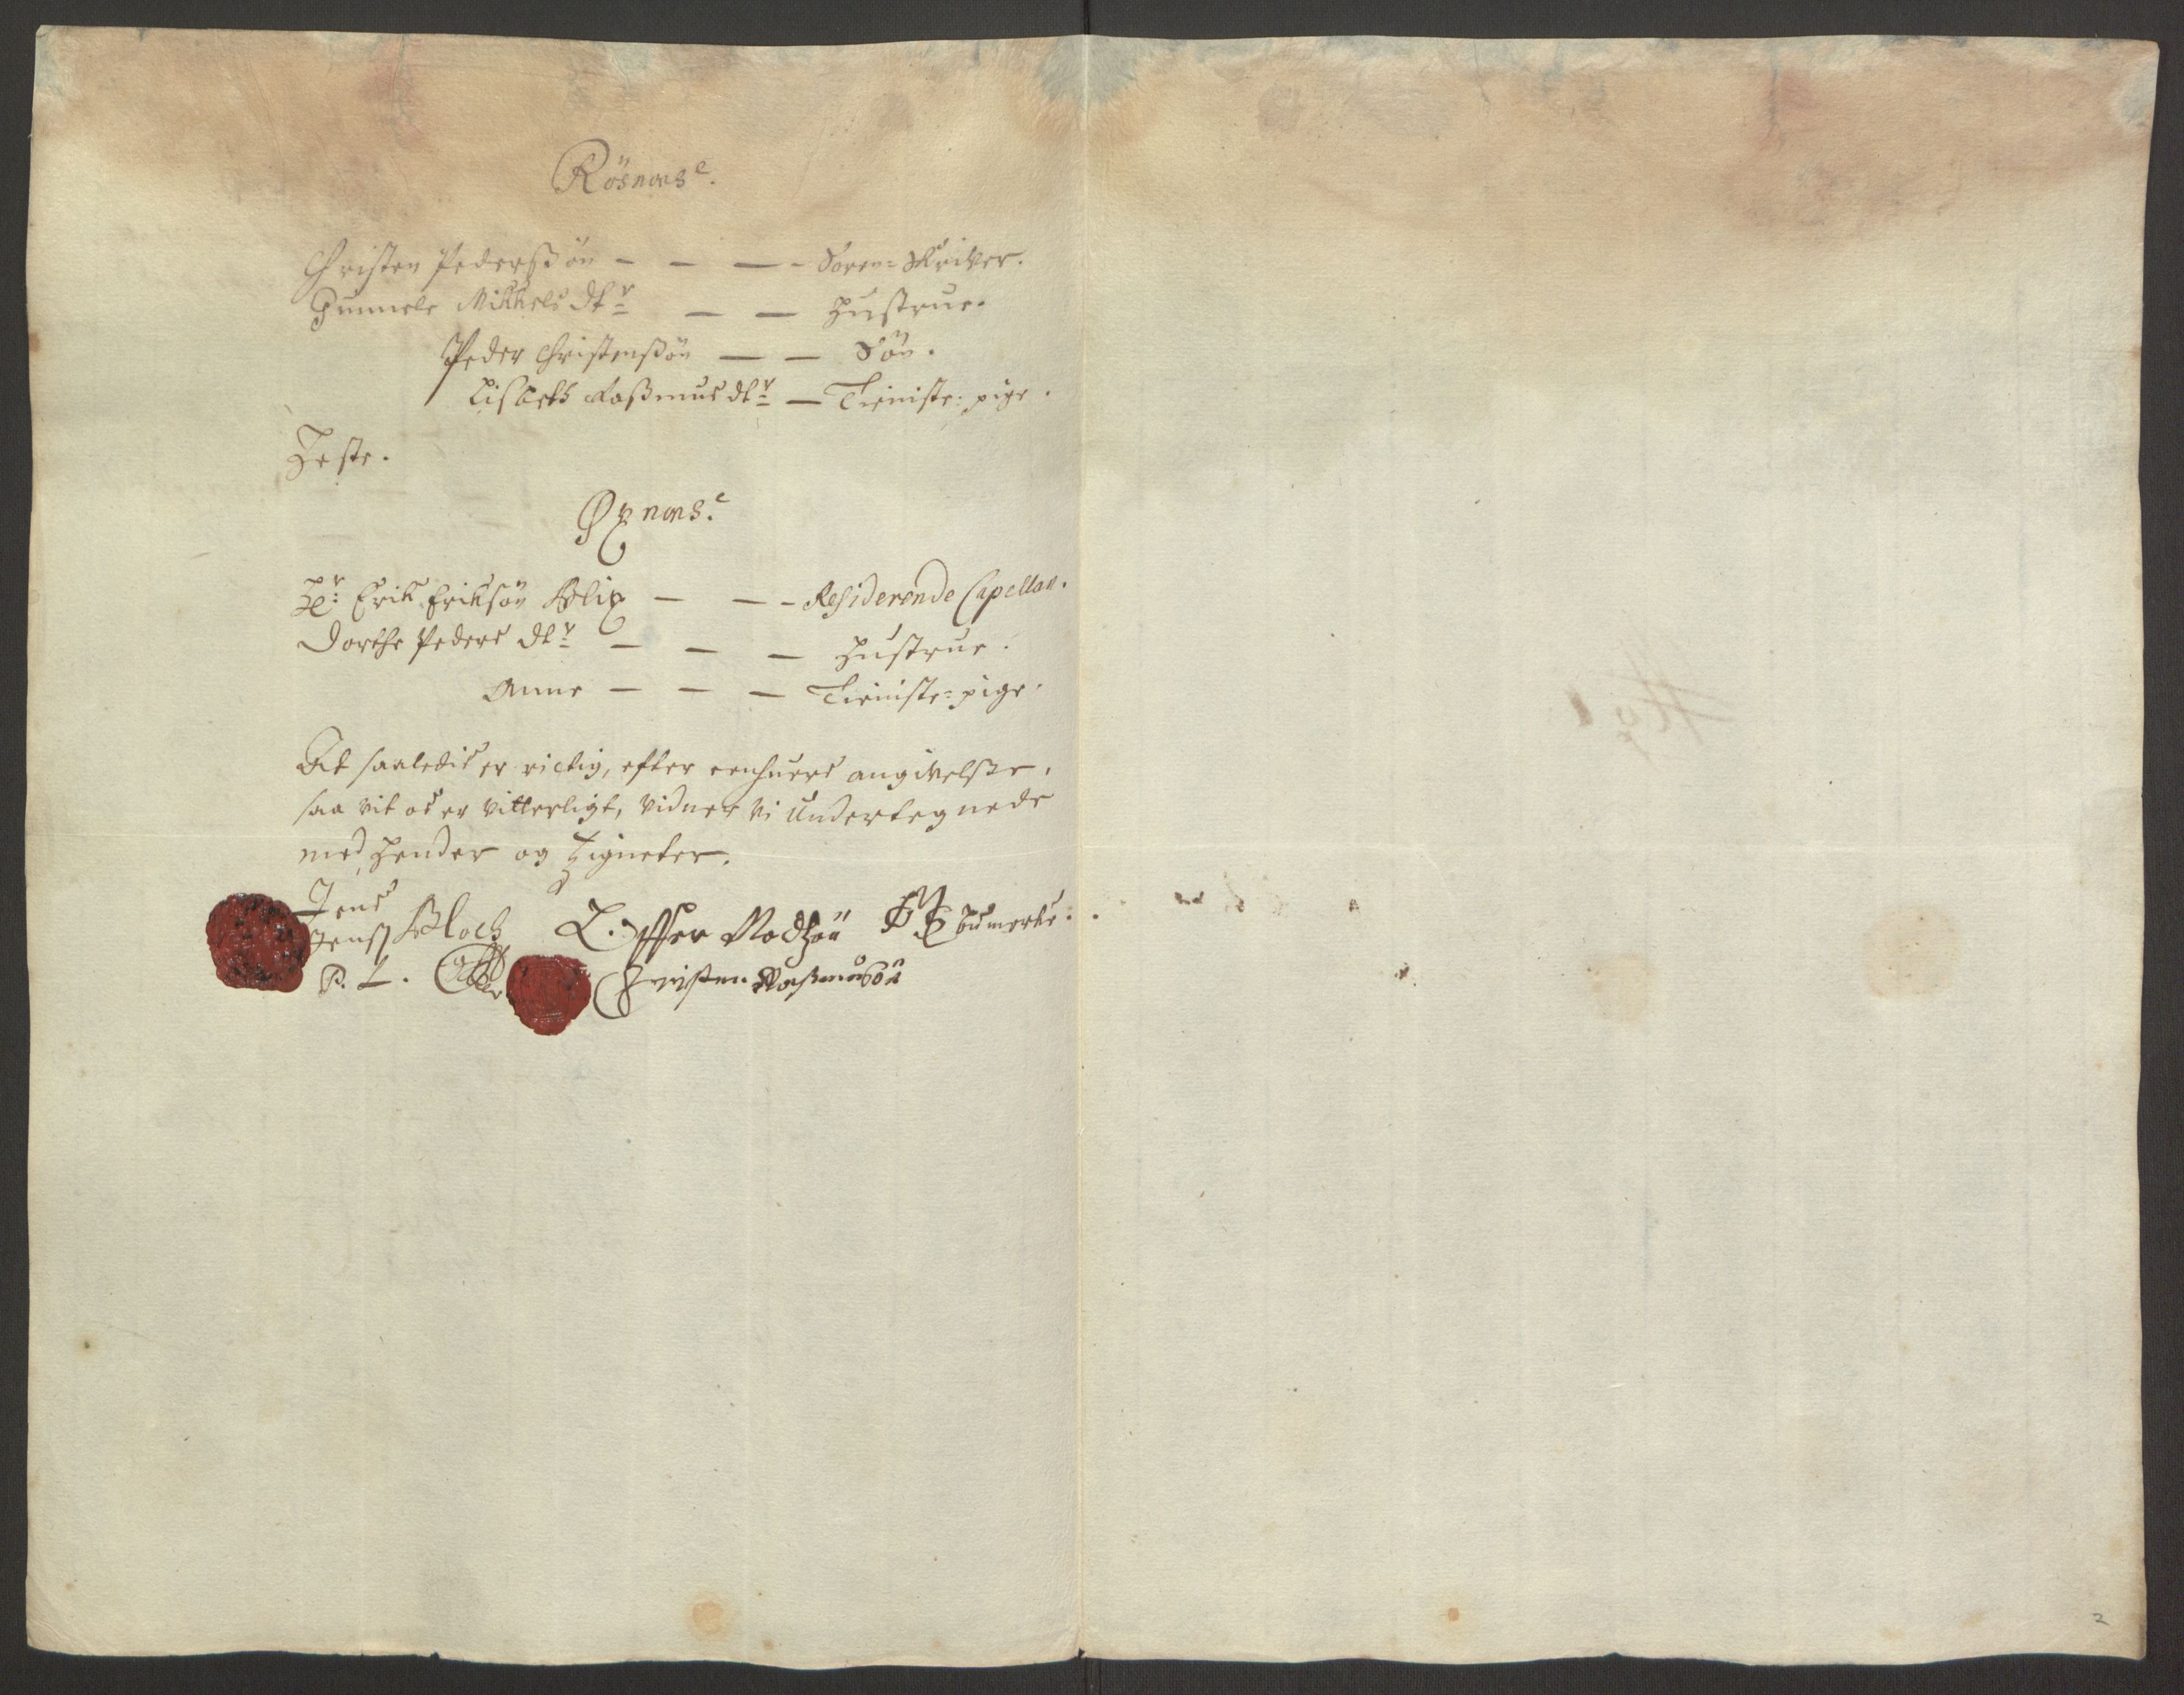 Røsnæs.
Christen Pederßøn - - - - Soren-Skriver.
Gunnele Mikkels dtr - - Hustrue.
Peder Christenßøn - - Søn.
Lisbeth Raßmus dtr - Tieniste: pige.
Heste.
Øxnæs.
Hr: Erik Eriksøn Blix - - - Residerende Capellan.
Dorthe Peders dtr - - - Hustrue.
Anne - - - Tieniste-pige.
At saaledis er rictig, efter eenhuers angivelße,
saa vit os er vitterligt, vidner vi Undertegnede
med Hender og Zigneter.
Jens
Jenß Bloch Madsøn bumerke.
P. L. Christen Raßmusøn
2